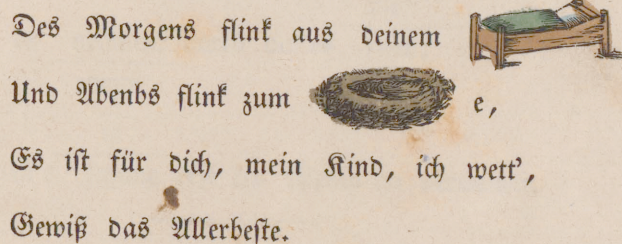 Des Morgens flink aus deinem
Und Abends flink zum e,
Es ist für dich, mein Kind, ich wett’,
Gewiß das Allerbeste.